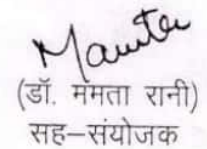 Mamta
(डॉ. ममता रानी)
सह-संयोजक